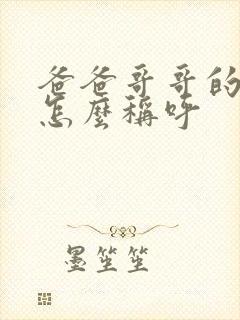 爸爸哥哥的
怎麼稱呼
墨笙笙